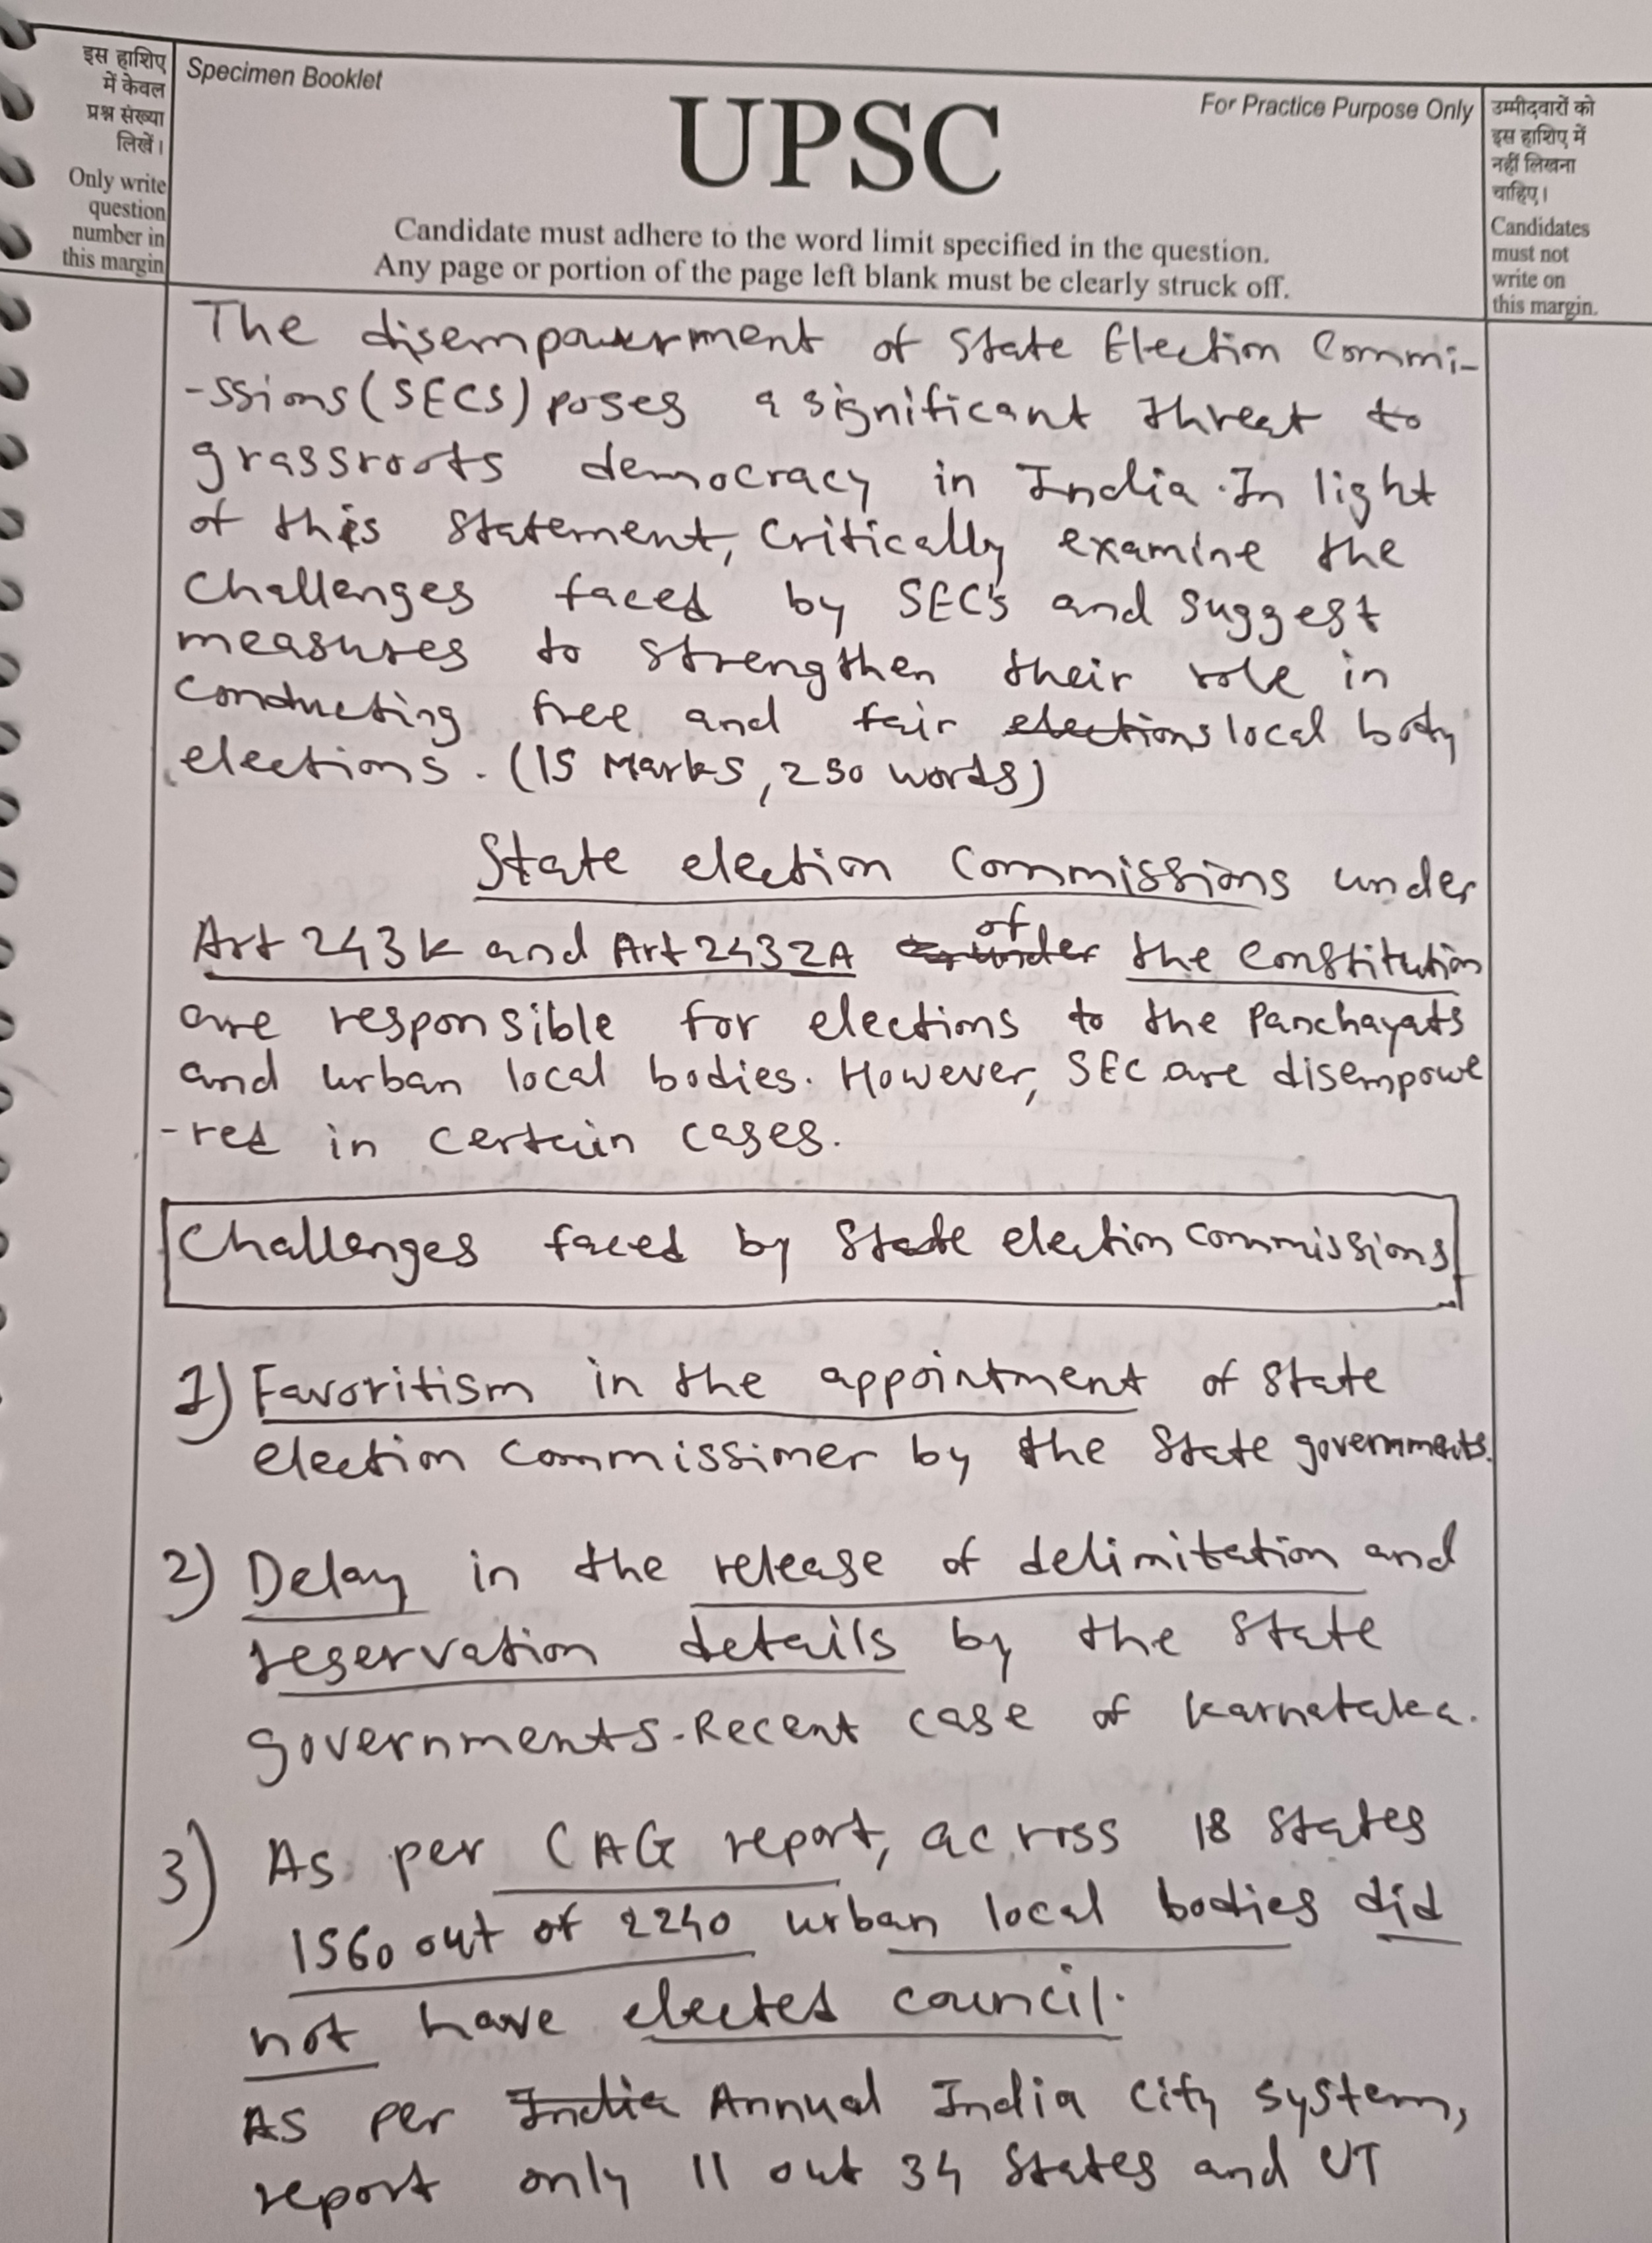 इस हाशिए
में केवल
प्रश्न संख्या
लिखें।
Only write
question
number in
this margin
Specimen Booklet
UPSC
For Practice Purpose Only
Candidate must adhere to the word limit specified in the question.
Any page or portion of the page left blank must be clearly struck off.
उम्मीदवारों को
इस हाशिए में
नहीं लिखना
चाहिए।
Candidates
must not
write on
this margin.
The disempowerment of State Election Commi-
-ssions (SECS) poses a significant threat to
grassroots democracy in India. In light
of this statement, critically examine the
challenges faced by SEC's and suggest
measures to strengthen their role in
conducting free and fair elections local body
elections. (15 Marks, 250 words)
State election Commissions under
Art 243K and Art 243ZA of under the Constitution
are responsible for elections to the Panchayats
and urban local bodies. However, SEC are disempowe
-red in certain cases.
Challenges faced by State election commissions
1) Favoritism in the appointment of State
election commissioner by the State governments.
2) Delay in the release of delimitation and
reservation details by the State
governments. Recent case of Karnataka.
3) As per CAG report, across 18 States
1560 out of 2240 urban local bodies did
not have elected council.
As per India Annual India City system,
report only 11 out 34 States and UT